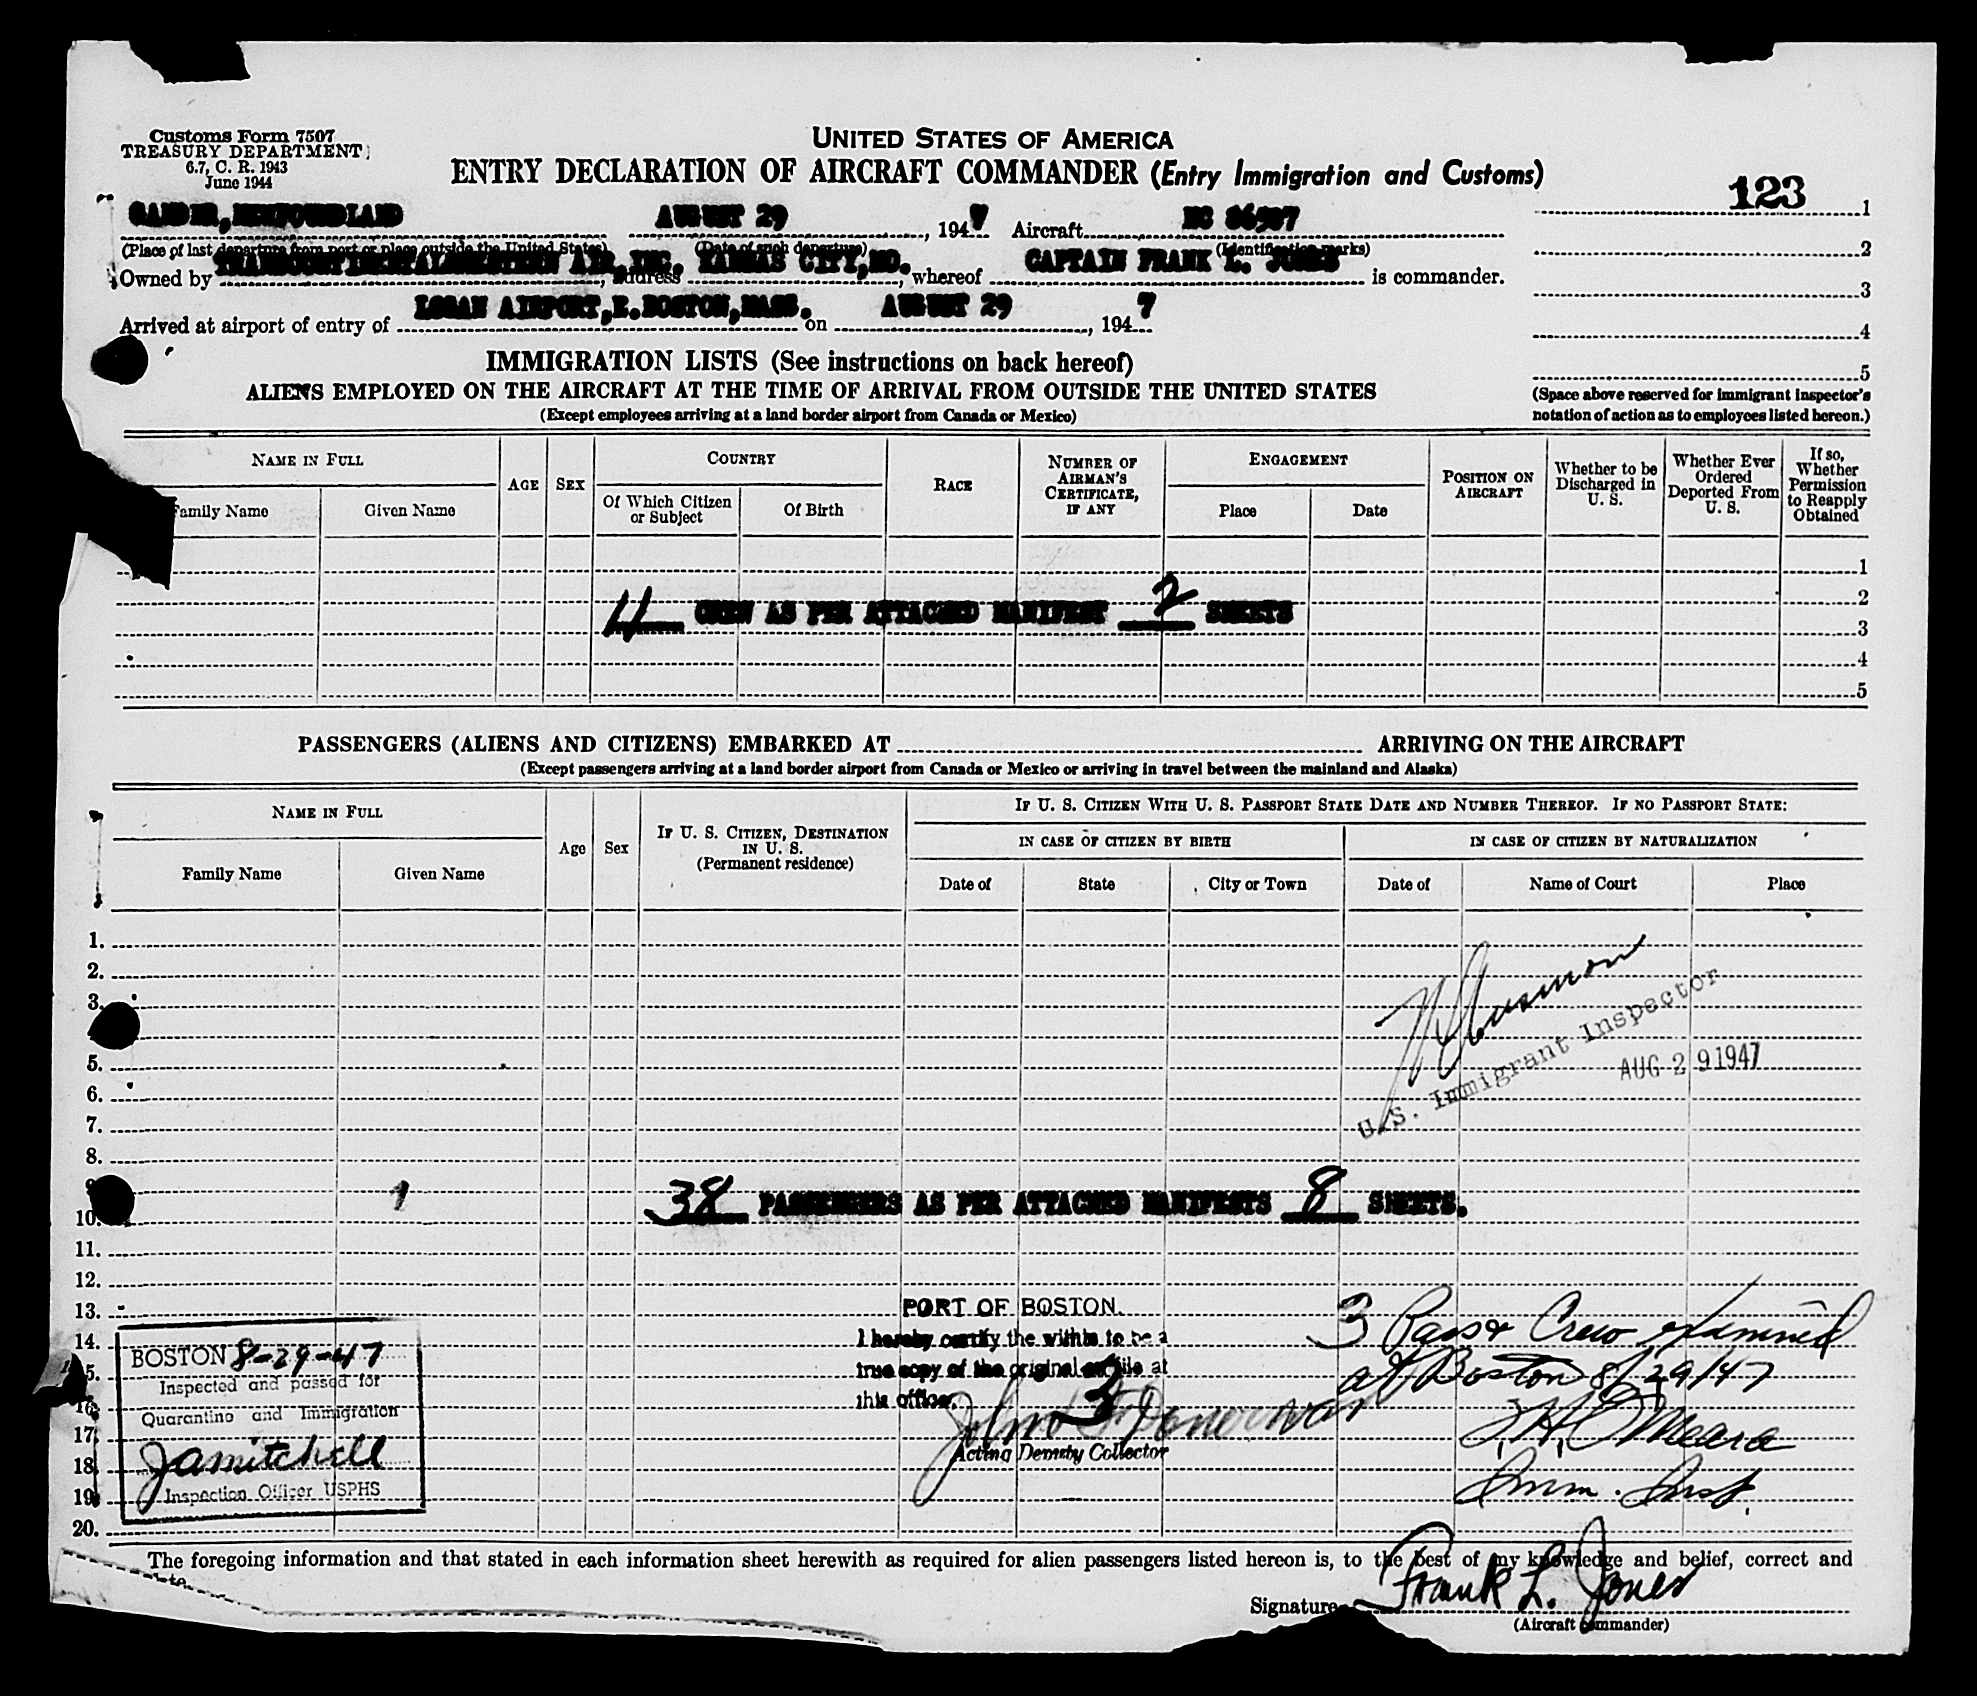 Customs Form 7507
TREASURY DEPARTMENT
6.7, C. R. 1943
June 1944
UNITED STATES OF AMERICA
ENTRY DECLARATION OF AIRCRAFT COMMANDER (Entry Immigration and Customs)
123
GANDER, NEWFOUNDLAND AUGUST 29, 1947 Aircraft NC 86507
(Place of last departure from port or place outside the United States) (Date of such departure) (Identification marks)
Owned by TRANSCONTINENTAL&WESTERN AIR, INC., address KANSAS CITY, MO., whereof CAPTAIN FRANK L. JONES is commander.
Arrived at airport of entry of LOGAN AIRPORT, E. BOSTON, MASS. on AUGUST 29, 1947
1
2
3
4
5
(Space above reserved for immigrant inspector's
notation of action as to employees listed hereon.)
IMMIGRATION LISTS (See instructions on back hereof)
ALIENS EMPLOYED ON THE AIRCRAFT AT THE TIME OF ARRIVAL FROM OUTSIDE THE UNITED STATES
(Except employees arriving at a land border airport from Canada or Mexico)
NAME IN FULL
Family Name
Given Name
AGE
SEX
COUNTRY
Of Which Citizen
or Subject
Of Birth
RACE
NUMBER OF
AIRMAN'S
CERTIFICATE,
IF ANY
ENGAGEMENT
Place
Date
POSITION ON
AIRCRAFT
Whether to be
Discharged in
U. S.
Whether Ever
Ordered
Deported From
U. S.
If so,
Whether
Permission
to Reapply
Obtained
1
2
11 CREW AS PER ATTACHED MANIFEST 2 SHEETS
3
4
5
PASSENGERS (ALIENS AND CITIZENS) EMBARKED AT ARRIVING ON THE AIRCRAFT
(Except passengers arriving at a land border airport from Canada or Mexico or arriving in travel between the mainland and Alaska)
NAME IN FULL
Family Name
Given Name
Age
Sex
IF U. S. CITIZEN, DESTINATION
IN U. S.
(Permanent residence)
IF U. S. CITIZEN WITH U. S. PASSPORT STATE DATE AND NUMBER THEREOF. IF NO PASSPORT STATE:
IN CASE OF CITIZEN BY BIRTH
IN CASE OF CITIZEN BY NATURALIZATION
Date of
State
City or Town
Date of
Name of Court
Place
1.
2.
3.
5.
6.
7.
8.
U.S. Immigrant Inspector
AUG 29 1947
1
38 PASSENGERS AS PER ATTACHED MANIFESTS 8 SHEETS.
10.
11.
12.
13.
14.
15.
16.
17.
18.
19.
20.
BOSTON 8-29-47
Inspected and passed for
Quarantine and Immigration
JAMitchell
Inspection Officer USPHS
PORT OF BOSTON.
I hereby certify the within to be a
true copy of the original on file at
this office.
John F Donovan
Acting Deputy Collector
3 Pass & Crew examined
at Boston 8/29/47
J.H. O'Meara
Imm. Insp.
The foregoing information and that stated in each information sheet herewith as required for alien passengers listed hereon is, to the best of my knowledge and belief, correct and
Signature Frank L. Jones
(Aircraft Commander)